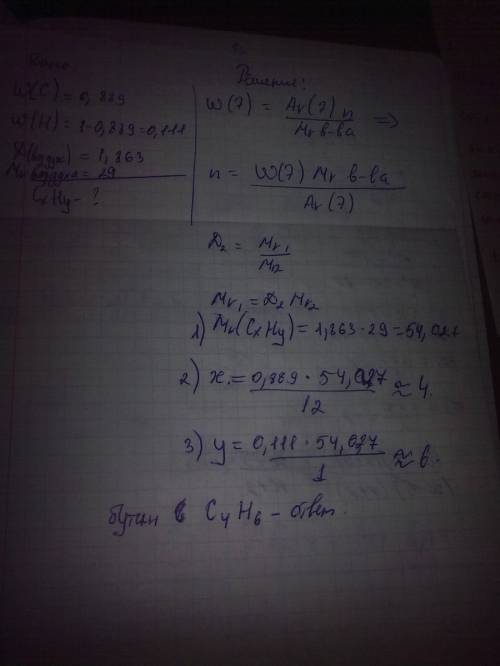 Дано
W(C) = 0,889
W(H) = 1-0,889=0,111
D(воздух) = 1,863
Mr воздуха = 29
CxHy - ?
Решение:
W(Э) = Ar(Э) n / Mr в-ва =>
n = W(Э) Mr в-ва / Ar(Э)
D2 = Mr1 / Mr2
Mr1 = D2 Mr2
1) Mr(CxHy) = 1,863·29 = 54,027
2) x = 0,889 · 54,027 / 12 ≈ 4.
3) y = 0,111 · 54,027 / 1 ≈ 6.
C4H6 - ответ.